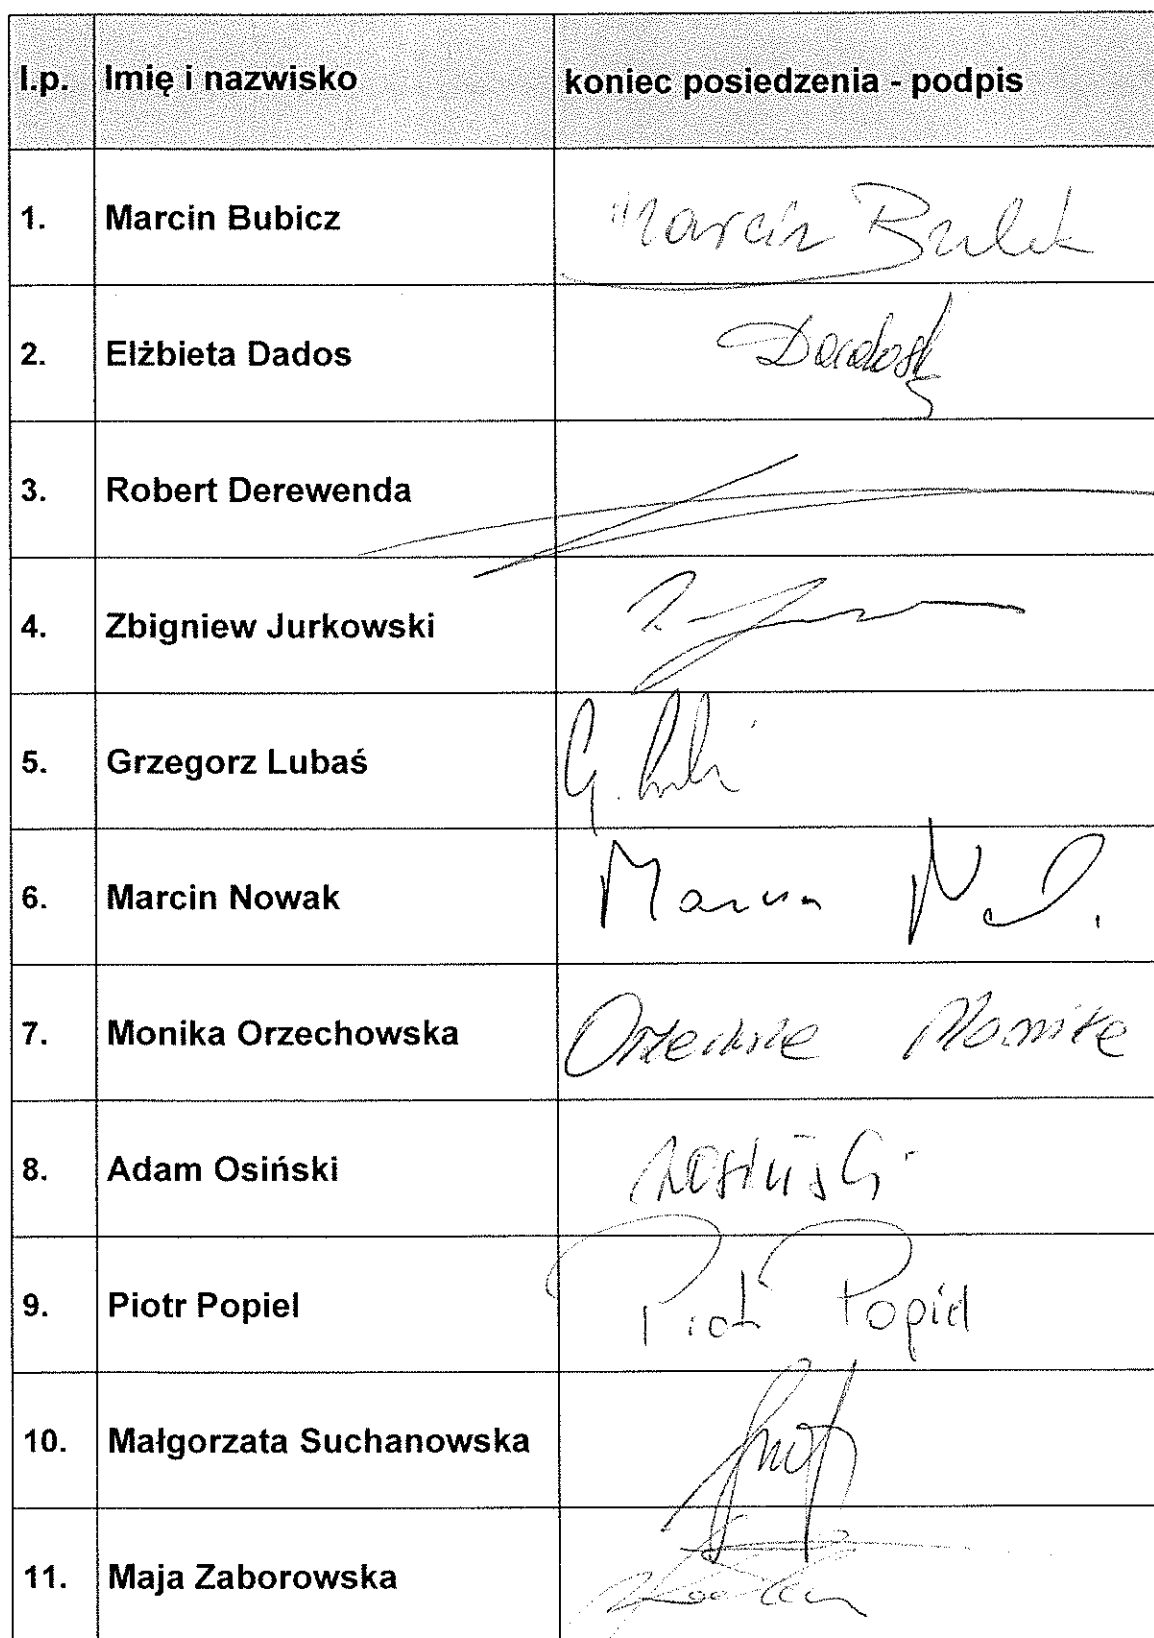 l.p. Imię i nazwisko koniec posiedzenia - podpis
1. Marcin Bubicz Marcin
2. Elżbieta Dados
3. Robert Derewenda
4. Zbigniew Jurkowski
5. Grzegorz Lubaś G.
6. Marcin Nowak Marcin
7. Monika Orzechowska Monika
8. Adam Osiński
9. Piotr Popiel Piotr Popiel
10. Małgorzata Suchanowska
11. Maja Zaborowska